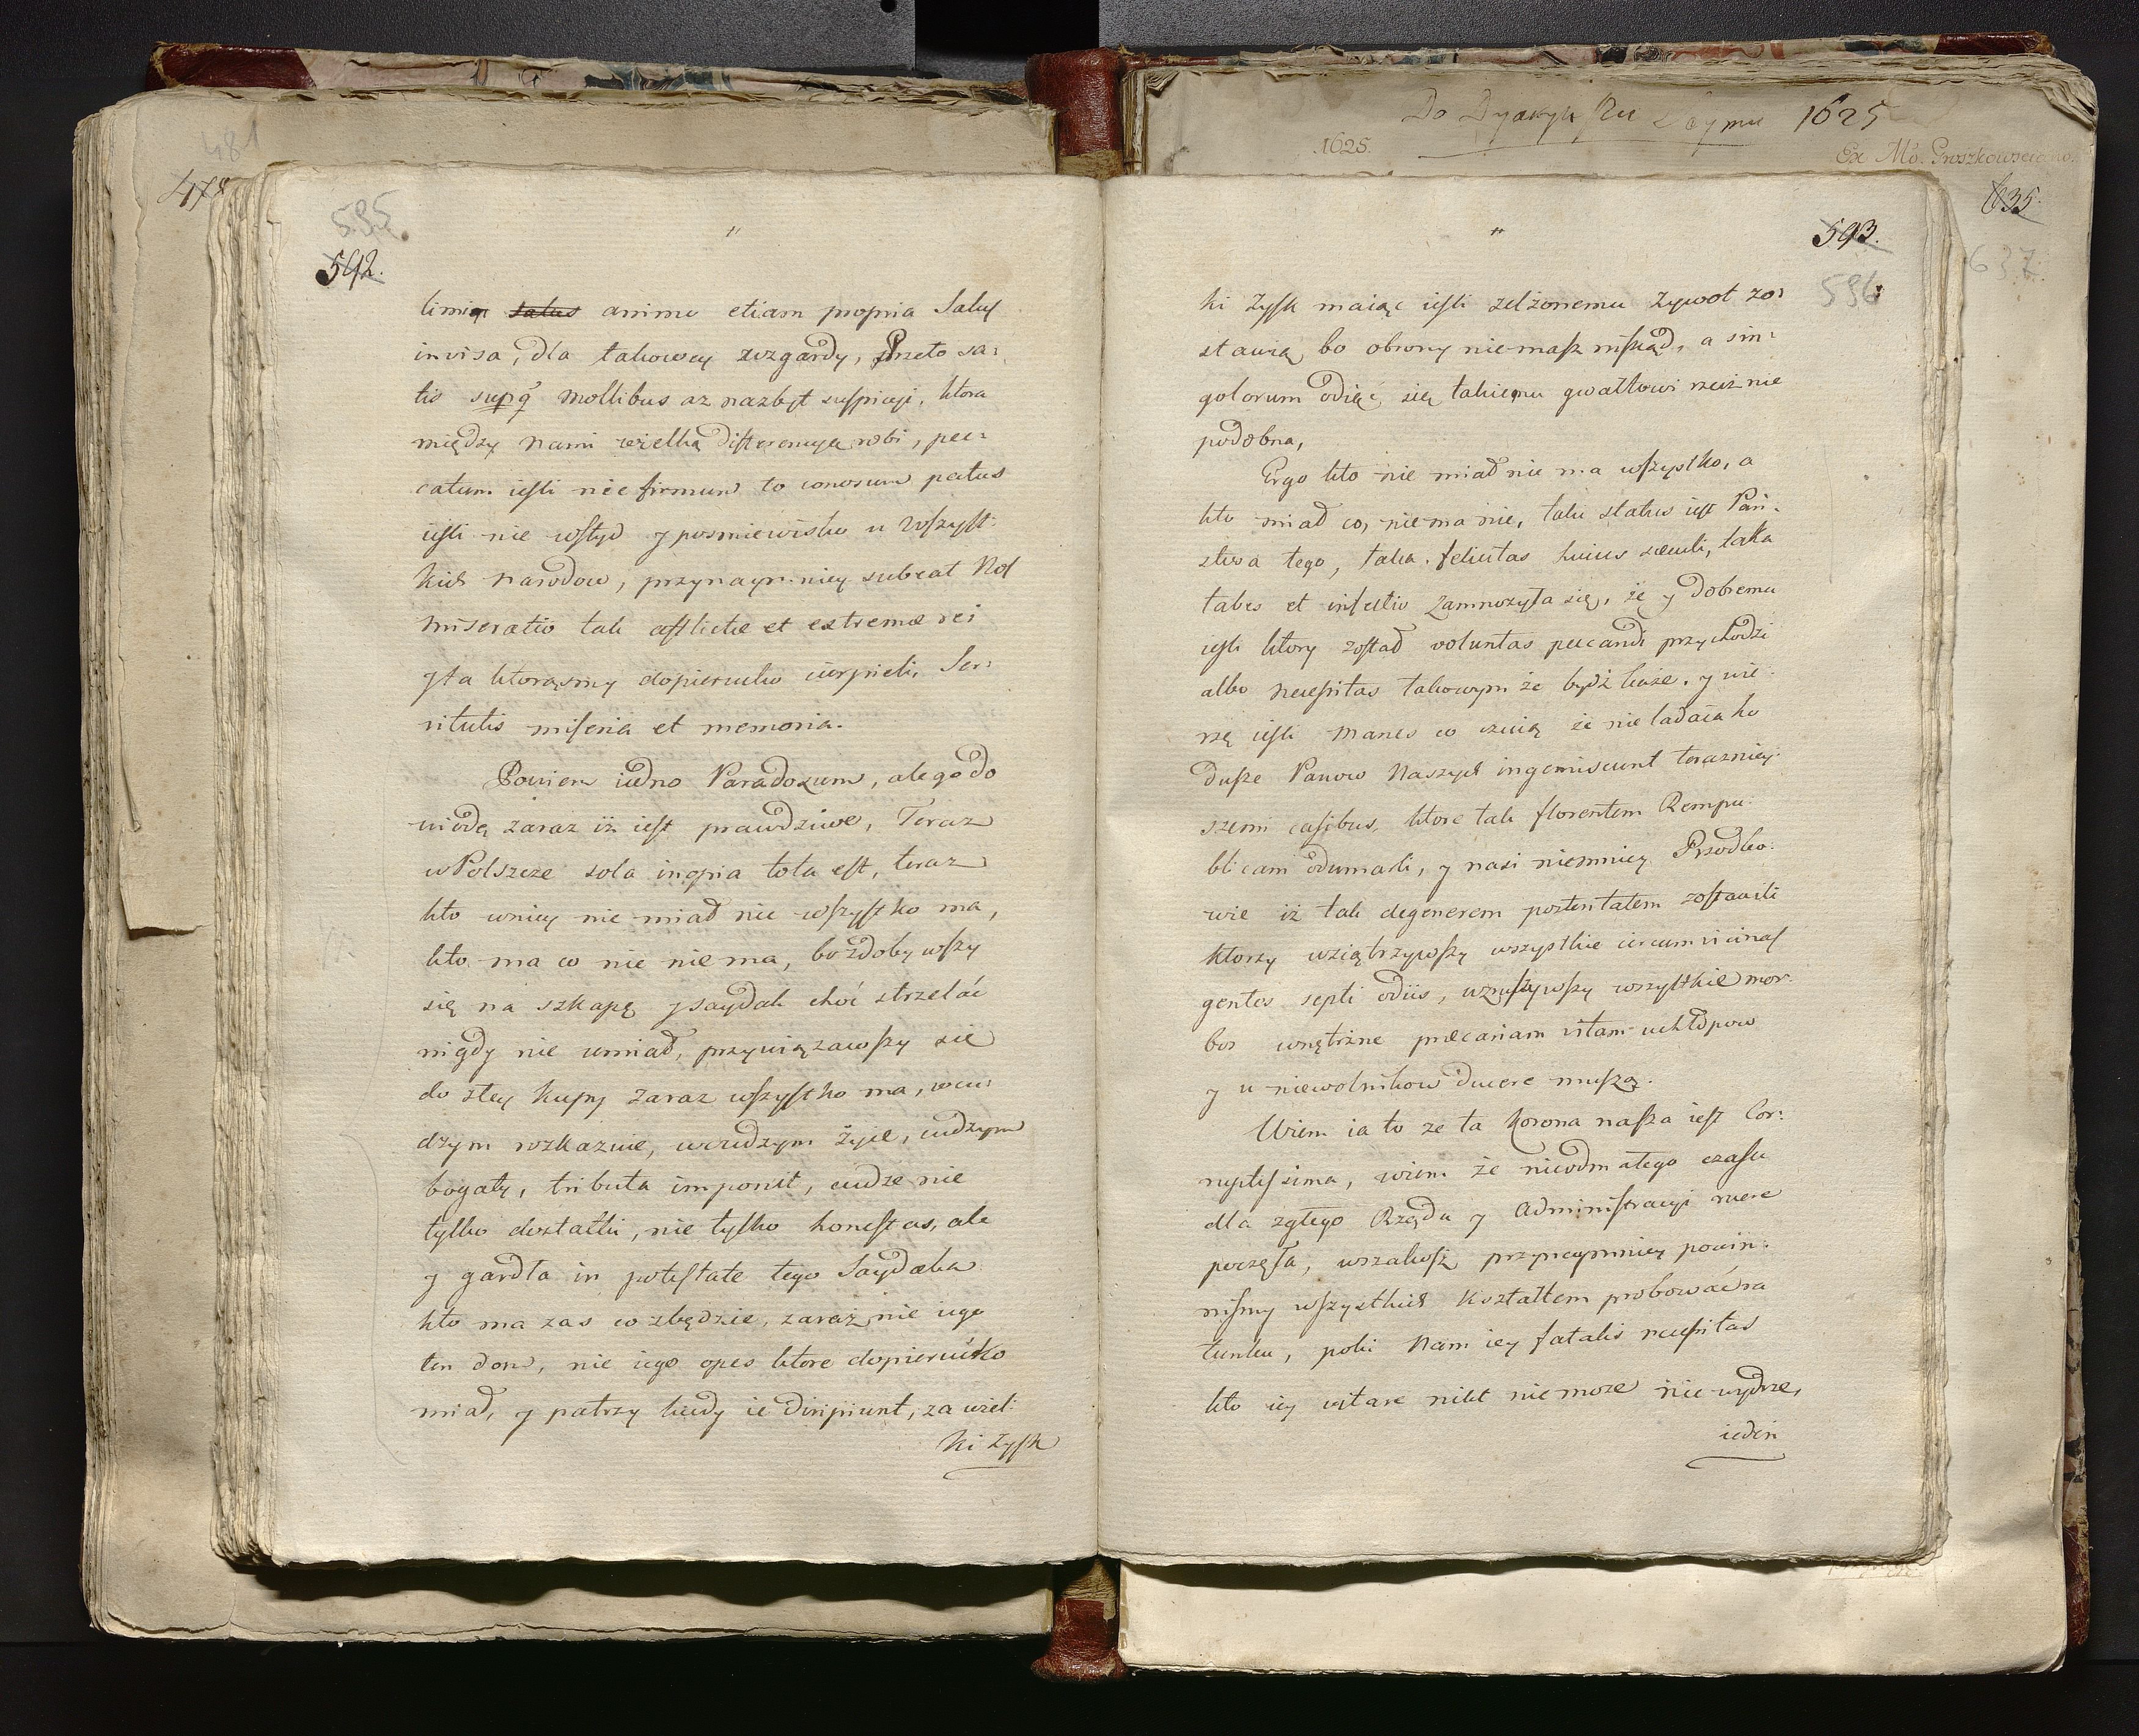 481
478
595
592.
"
limior salus animo etiam propria Salus
invisa, dla takowey wzgardy, Przeto sa-
tis supq mollibus az nazbyt suspicyi, ktora
między nami wielką differencyą robi, pec-
catum iesli nie firmum to conorum pectus
iesli nie wstyd y posmiewisko u Wszyst-
kich narodow, przynaymniey subeat Nos
miseratio tak afflictæ et extremæ rei
y ta ktorąsmy dopierucko cierpieli, Ser-
vitutis miseria et memoria.
Powiem iedno Paradoxum, ale go do
wiodę zaraz iż iest prawdziwe, Teraz
w Polszcze sola inopia tota est, teraz
kto wniey nie miał nic wszystko ma,
kto ma co nic nie ma, bo zdobywszy
się na szkapę y saydak choć strzelać
nigdy nie umiał, przywiązawszy sie
do złey kupy zaraz wszystko ma, w cu-
dzym rozkazuie, w cudzym żyie, cudzym
bogaty, tributa imponit, cudze nie
tylko dostatki, nie tylko honestas, ale
y gardła in potestate tego Saydaka
kto ma zas co zbędzie, zaraz nie iego
ten dom, nie iego opes ktore dopierućko
miał, y patrzy kiedy ie diripiunt, za wiel-
ki zysk
Do 1625
1625.
Ex Mo.
635.
637.
"
593.
596
ki zysk maiąc iesli zelżonemu żywot zo-
stawią, bo obrony niemasz niskąd, a sin-
golorum odiąć się takiemu gwałtowi rzecz nie
podobna,
Ergo kto nie miał nic ma wszystko, a
kto miał co, niema nic, taki status iest Pań-
stwa tego, taka felicitas huius sæculi, taka
tabes et infectio zamnożyła się, że y dobremu
iesli ktory został voluntas peccandi przychodzi
albo necessitas takowym że bydź każe. y wie-
rzę iesli manes co czuią że nieladaiako
dusze Panow Naszych ingemiscunt terazniey-
szemi casibus, ktore tak florentem Rempu-
blicam odumarli, y nasi niemniey Przodko-
wie iż tak degenerem posteritatem zostawili
ktorzy wziątrzywszy wszystkie circumvicinas
gentes septi odiis, wzruszywszy wszystkie mor-
bos wnętrzne precariam vitam u chłopow
y u niewolnikow ducere muszą.
Wiem ia to ze ta korona nasza iest Cor-
ruptissima, wiem że nieodmałego czasu
dla zgłego Rządu y Administracyi ruere
poczęła, wszakosz przynaymniey powin-
nismy wszystkich kształtem probować ra
tunku, poki nam iey fatalis necessitas
kto iey vitare nikt niemoze nie wydrze,
ieden